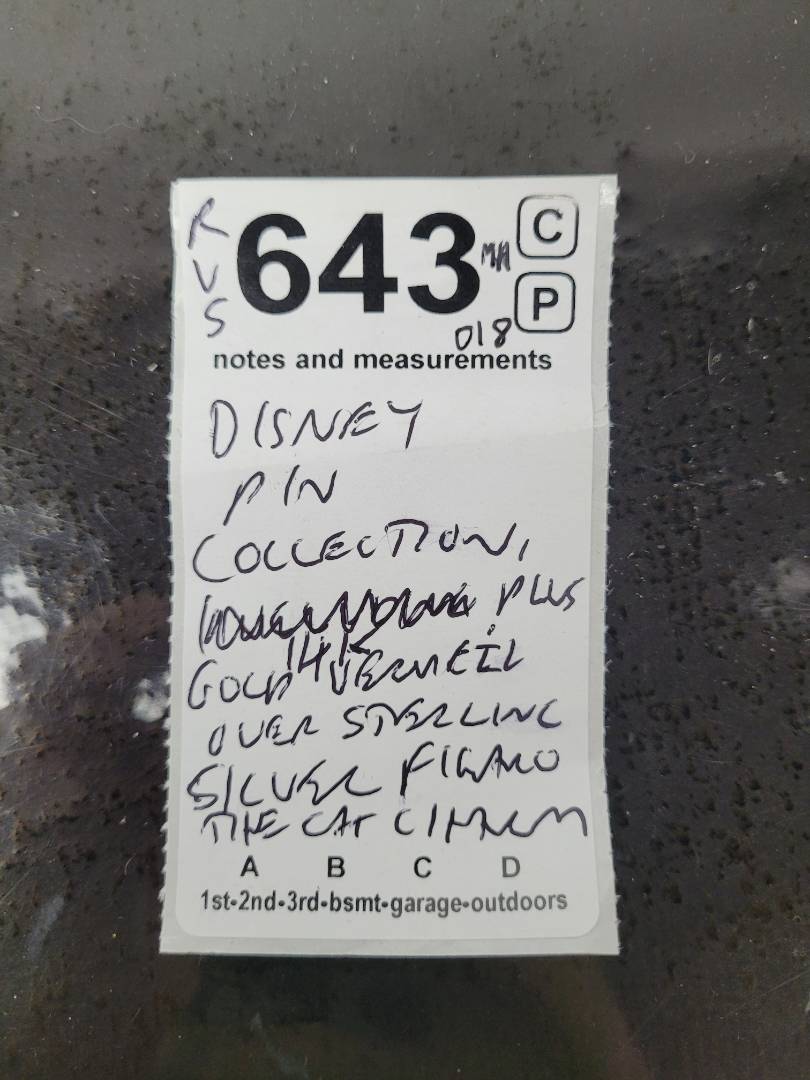 RVS
643 MA
C
P
018
notes and measurements
DISNEY
PIN
COLLECTION,
PLUS
14K
GOLD VERMEIL
OVER STERLING
SILVER FIGARO
THE CAT CHARM
A B C D
1st-2nd-3rd-bsmt-garage-outdoors